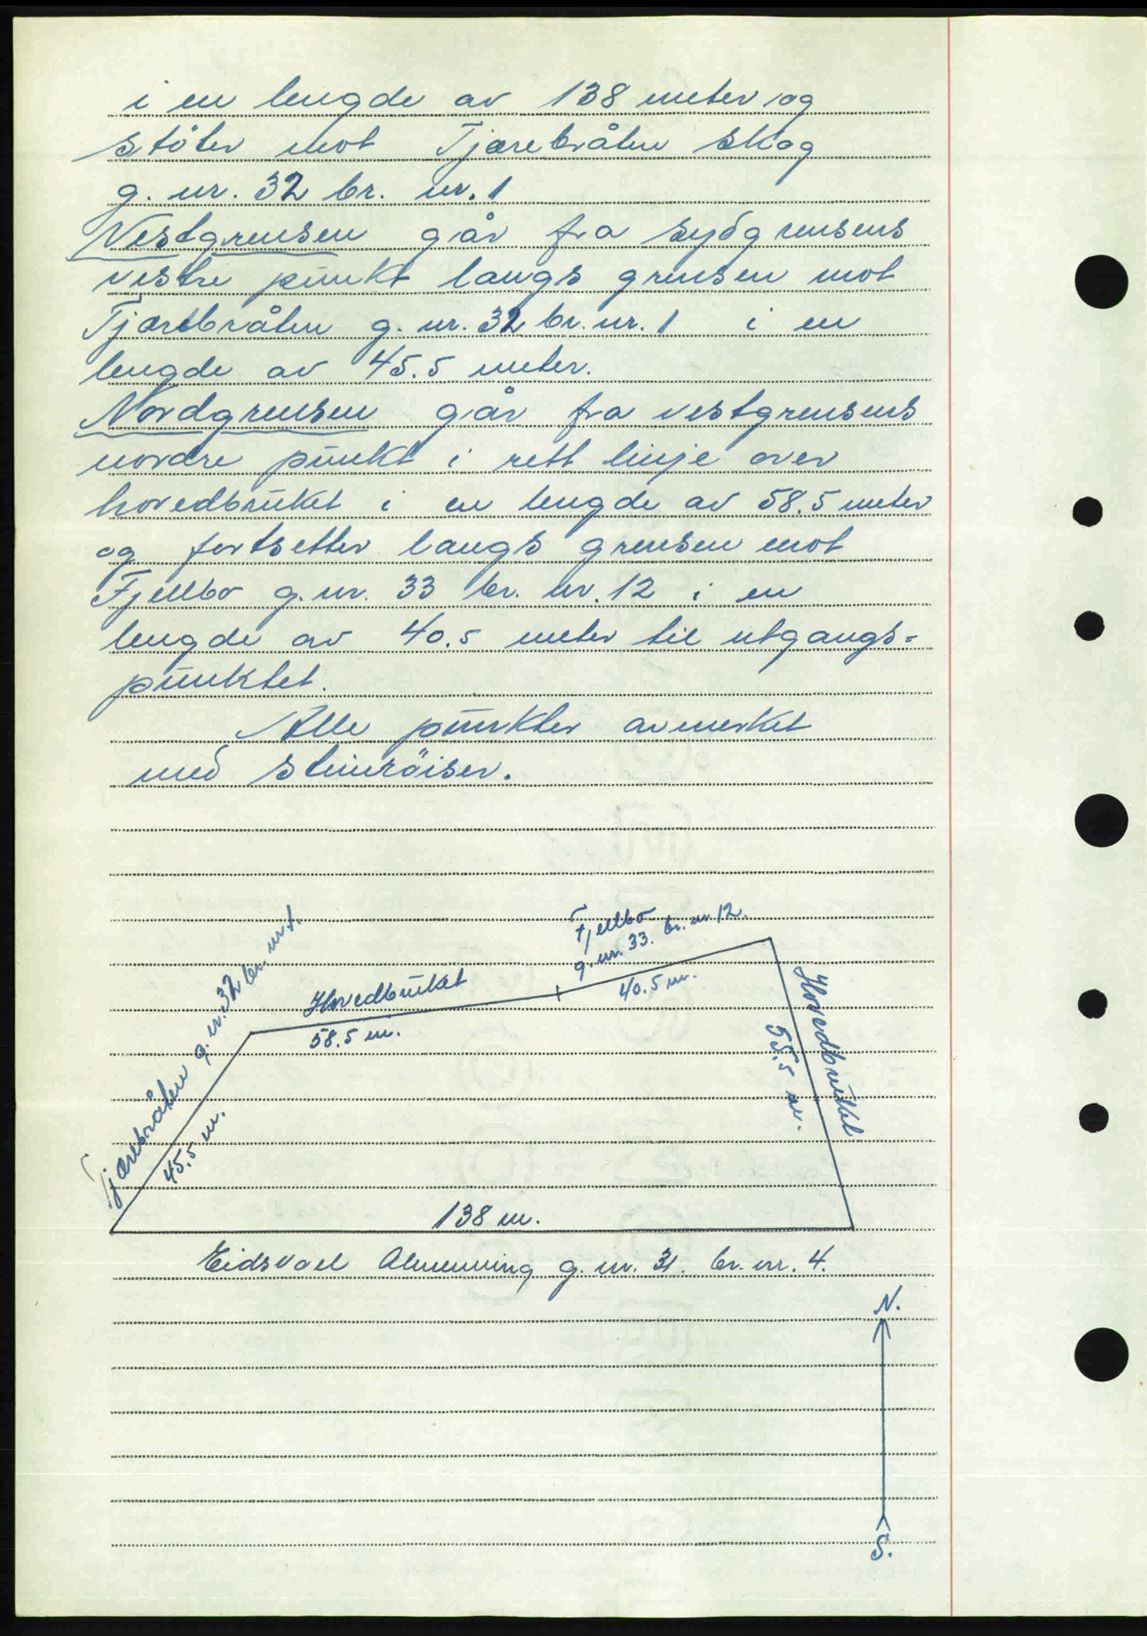 i en lengde av 138 meter og
stöter mot Tjærebråten skog
g. nr. 32 br. nr. 1
Vestgrensen går fra sydgrensens
vestre punkt langs grensen mot
Tjærebråten g. nr. 32 br. nr. 1 i en
lengde av 45.5 meter.
Nordgrensen går fra vestgrensens
nordre punkt i rett linje over
hovedbruket i en lengde av 58.5 meter
og fortsetter langs grensen mot
Fjellbo g. nr. 33 br. nr. 12 i en
lengde av 40.5 meter til utgangs=
punktet.
Alle punkter avmerket
med steinröiser.
Fjellbo
g. nr. 33. br. nr. 12.
40.5 m.
Hovedbruket
58.5 m.
Tjærebråten g. nr. 32 br. nr. 1.
45.5 m.
Hovedbruket
55.5 m.
138 m.
Eidsvoll Almenning g. nr. 31. br. nr. 4.
N.
S.